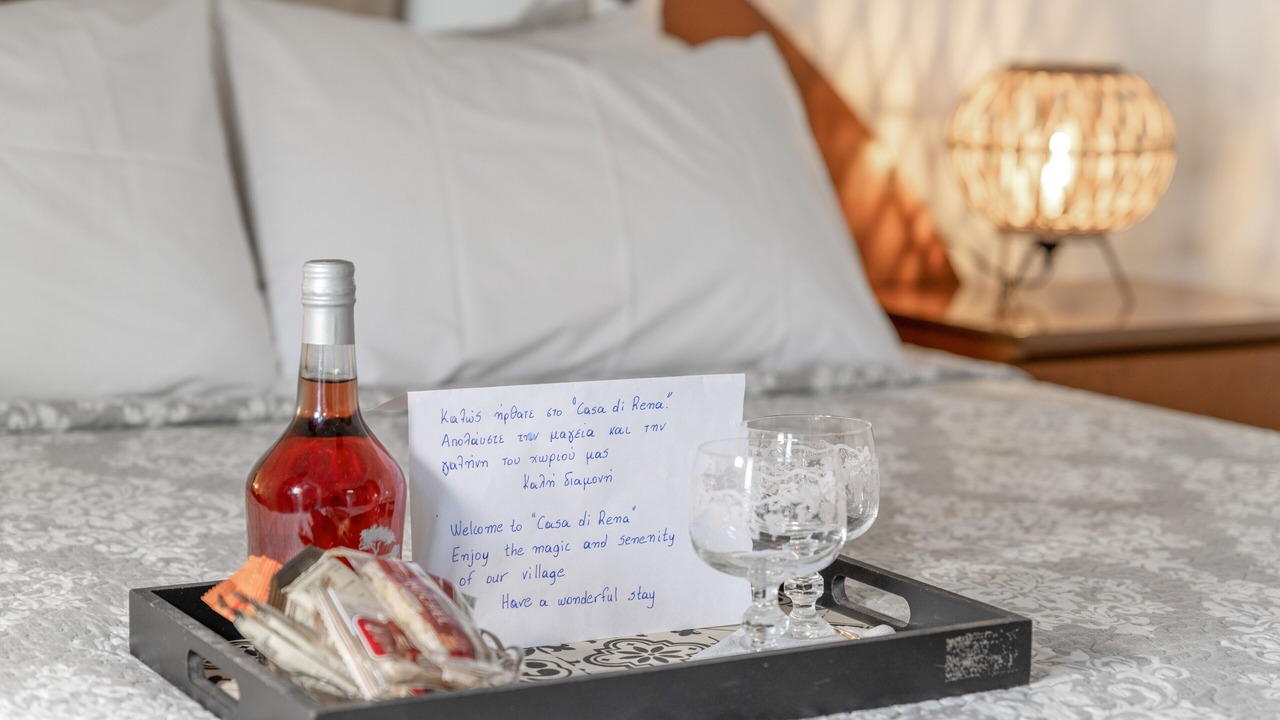 Καλώς ήρθατε στο "Casa di Rena".
Απολαύστε την μαγεία και την
γαλήνη του χωριού μας
Καλή διαμονή
Welcome to "Casa di Rena"
Enjoy the magic and serenity
of our village
Have a wonderful stay